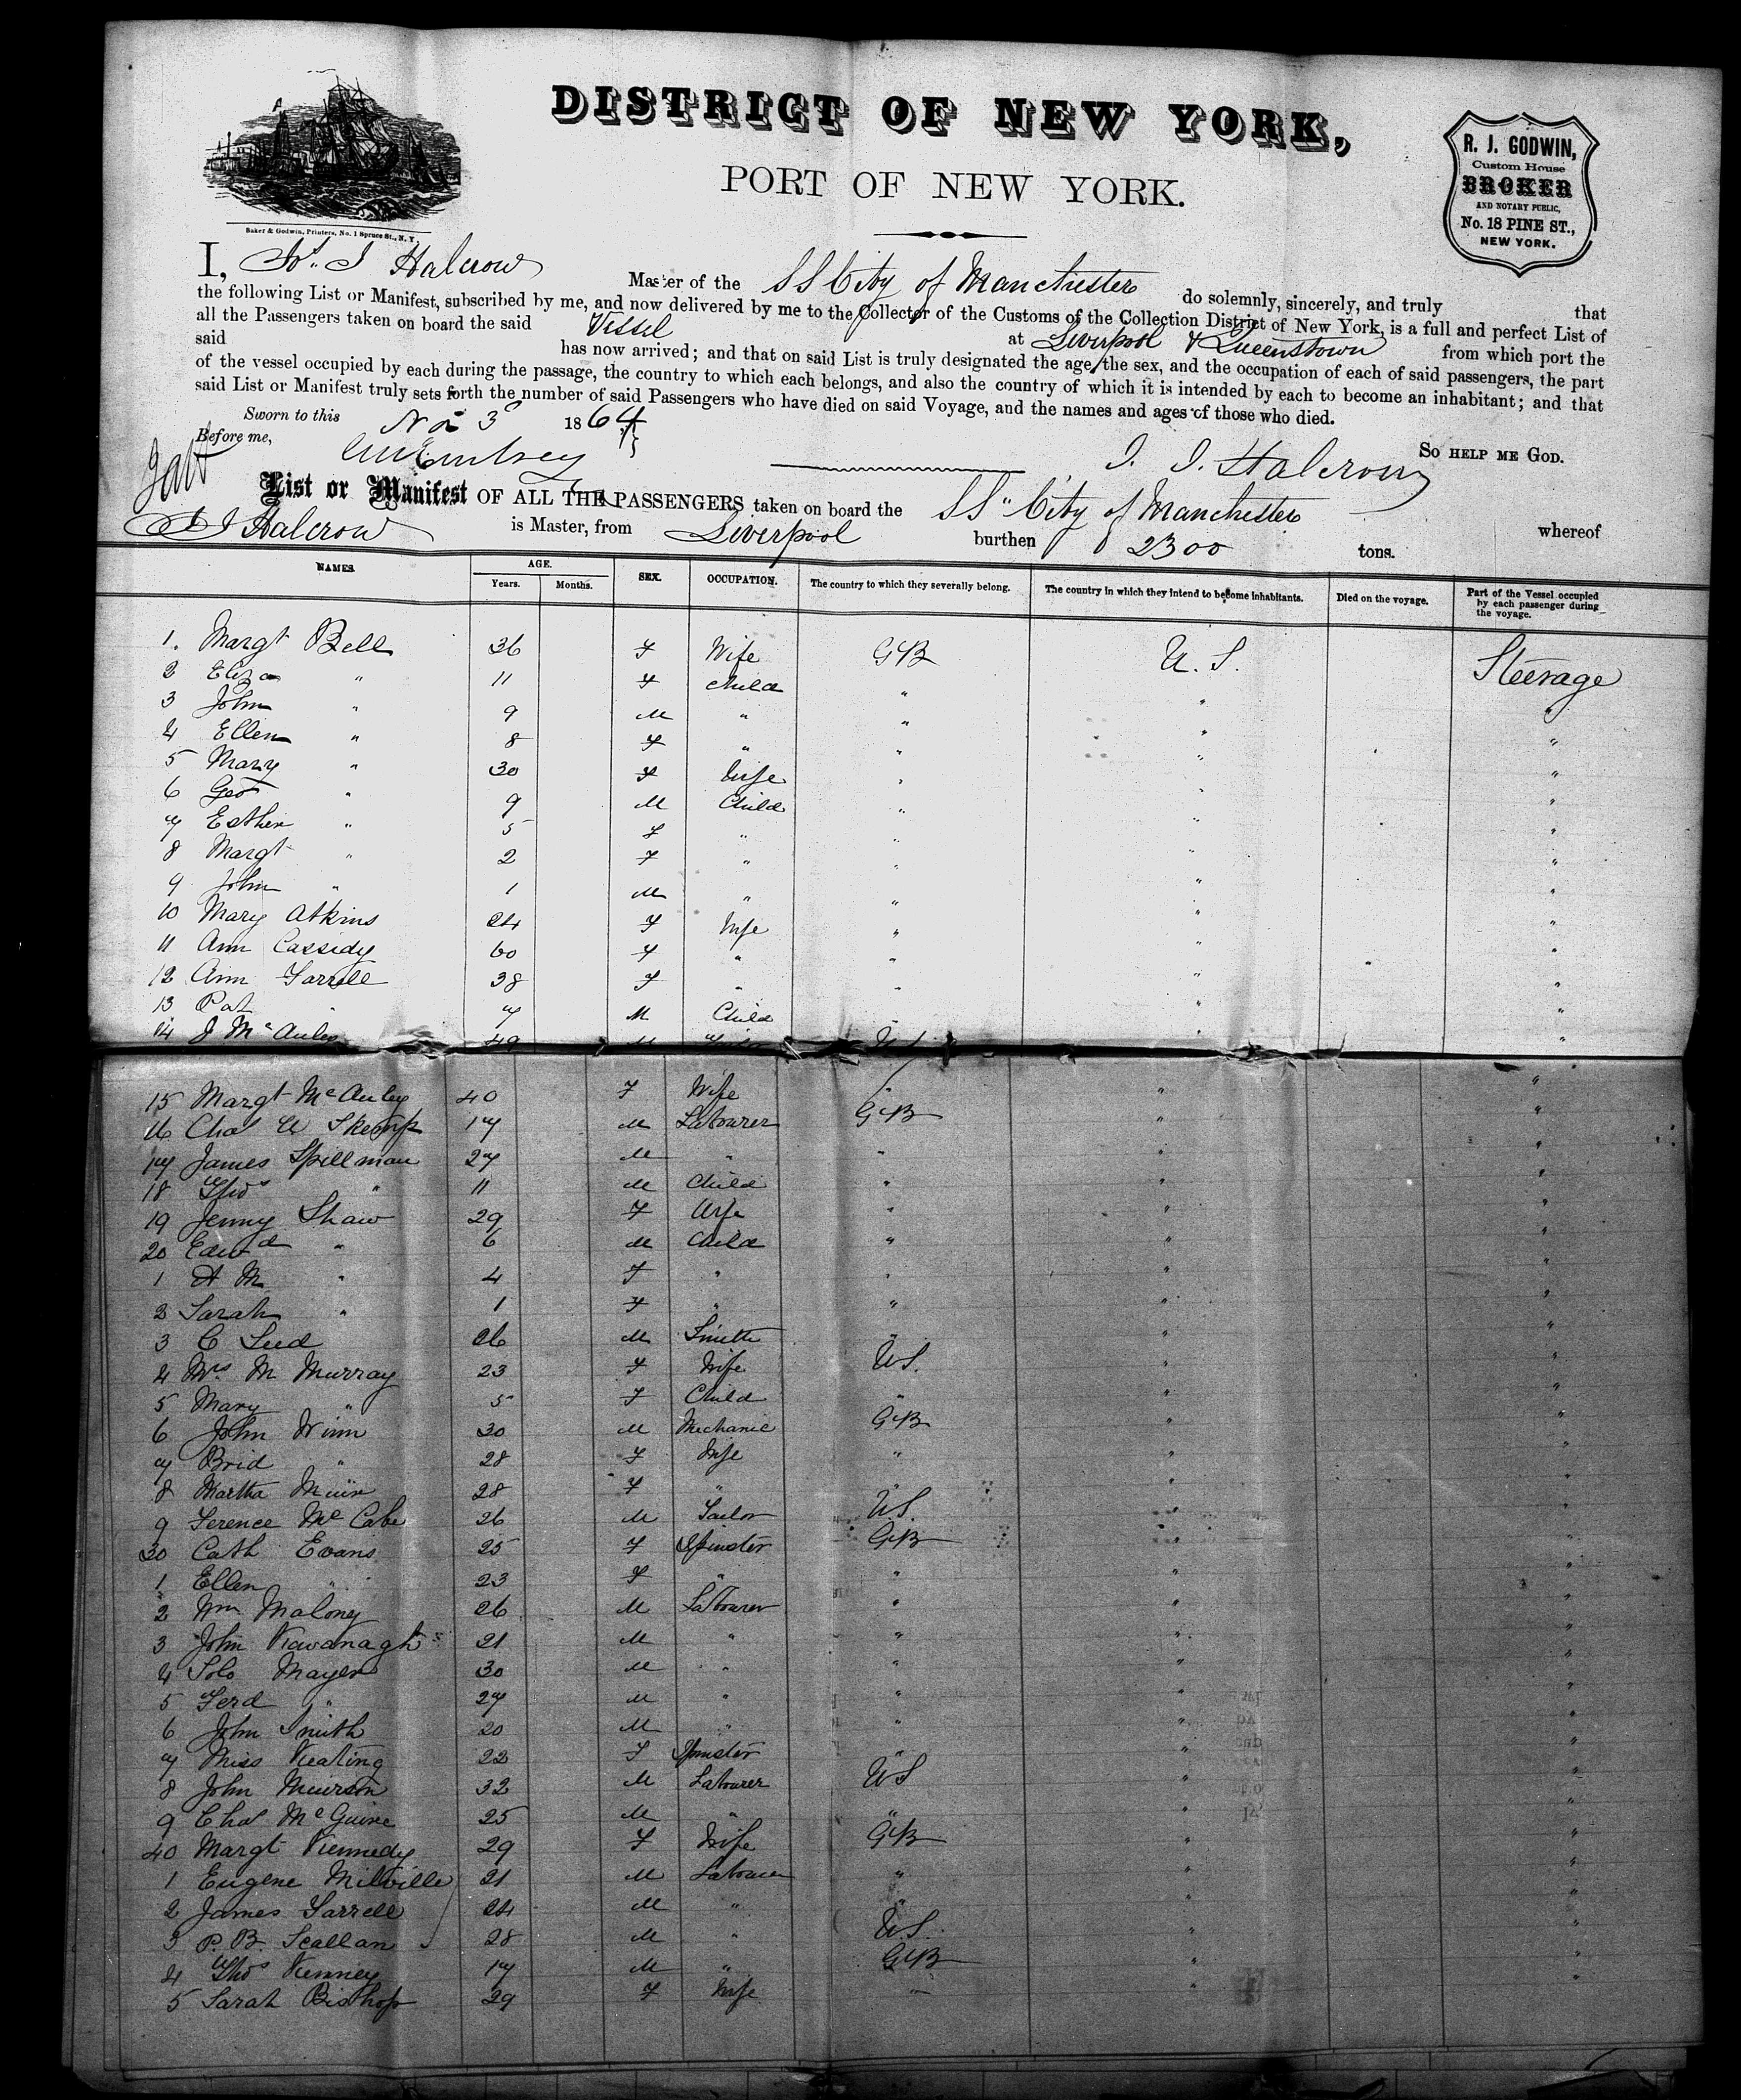 DISTRICT OF NEW YORK,
PORT OF NEW YORK.
R. J. GODWIN,
Custom House
BROKER
AND NOTARY PUBLIC,
No. 18 PINE ST.,
NEW YORK.
Baker & Godwin, Printers, No. 1 Spruce St., N. Y.
I, J. Halcrow Master of the SS City of Manchester do solemnly, sincerely, and truly that
the following List or Manifest, subscribed by me, and now delivered by me to the Collector of the Customs of the Collection District of New York, is a full and perfect List of
all the Passengers taken on board the said Vessel at Liverpool & Queenstown from which port the
said has now arrived; and that on said List is truly designated the age, the sex, and the occupation of each of said passengers, the part
of the vessel occupied by each during the passage, the country to which each belongs, and also the country of which it is intended by each to become an inhabitant; and that
said List or Manifest truly sets forth the number of said Passengers who have died on said Voyage, and the names and ages of those who died.
Sworn to this 3 1864
Before me, So HELP ME GOD.
J. J. Halcrow
List or Manifest OF ALL THE PASSENGERS taken on board the SS City of Manchester whereof
J J Halcrow is Master, from Liverpool burthen 2300 tons.
NAMES. AGE. Years. Months. SEX. OCCUPATION. The country to which they severally belong. The country in which they intend to become inhabitants. Died on the voyage. Part of the Vessel occupied by each passenger during the voyage.
1. Margt Bell 36 F Wife GB U. S. Steerage
2 Eliza " 11 F Child " " "
3 John " 9 M " " " "
4 Ellen " 8 F " " " "
5 Mary " 30 F Wife " " "
6 Geo " 9 M Child " " "
7 Esther " 5 F " " " "
8 Margt " 2 F " " " "
9 John " 1 M " " " "
10 Mary Atkins 24 F Wife " " "
11 Ann Cassidy 60 F " " " "
12 Ann Farrell 38 F " " " "
13 Pat " 7 M Child " "
14 J McAuley 49 M U S " "
15 Margt McAuley 40 F Wife " " "
16 Chas W Skemp 17 M Labourer GB " "
17 James Spillman 27 M " " " "
18 Thos " 11 M Child " " "
19 Jenny Shaw 29 F Wife " " "
20 Edwd " 6 M Child " " "
1 A M " 4 F " " " "
2 Sarah " 1 F " " " "
3 C Seed 26 M Smith " " "
4 Mrs M Murray 23 F Wife US. " "
5 Mary " 5 F Child " " "
6 John Winn 30 M Mechanic GB " "
7 Brid " 28 F Wife " " "
8 Martha Muir 28 F " " " "
9 Terence McCabe 26 M Sailor US. " "
30 Cath Evans 25 F Spinster GB " "
1 Ellen " 23 F " " " "
2 Wm Malony 26 M Labourer " " "
3 John Kavanagh 21 M " " " "
4 Solo Mayer 30 M " " " "
5 Ferd " 27 M " " " "
6 John Smith 20 M " " " "
7 Miss Keating 22 F Spinster " " "
8 John Muirson 32 M Labourer US " "
9 Chas McGuire 25 M " " " "
40 Margt Kennedy 29 F Wife GB " "
1 Eugene Milville 21 M Labourer " " "
2 James Farrell 24 M " " " "
3 P. B. Scallan 28 M " U.S. " "
4 Thos Kenney 17 M " GB " "
5 Sarah Bishop 29 F Wife " " "